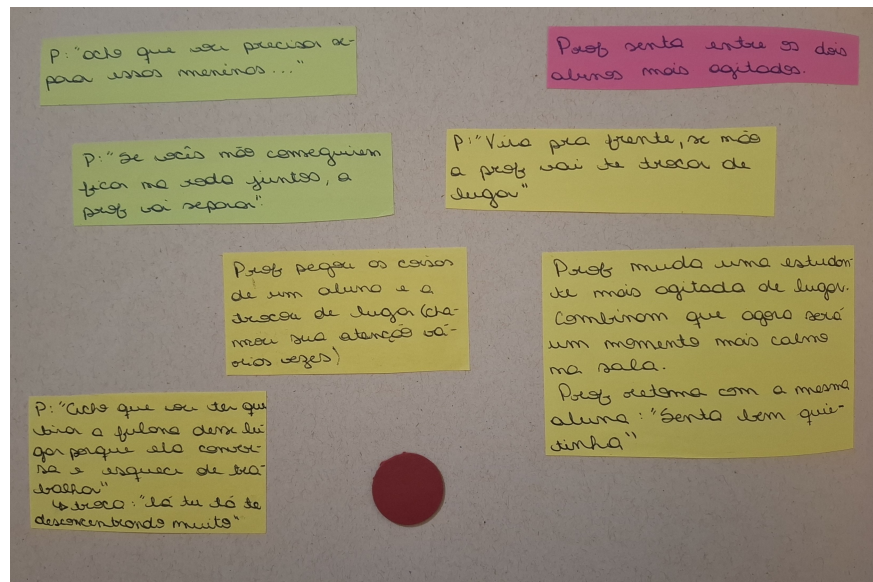 P: "acho que vou precisar se-
para essas meninos..."
Prof senta entre os dois
alunos mais agitados.
P: "Se vocês não conseguirem
ficar na roda juntos, a
prof vai separar".
P: "Vira pra frente, se não
a prof vai te trocar de
lugar"
Prof pegou as coisas
de um aluno e a
trocou de lugar (cha-
mou sua atenção vá-
rias vezes)
Prof muda uma estudan-
te mais agitada de lugar.
Combinam que agora será
um momento mais calmo
na sala.
Prof retoma com a mesma
aluna: "Senta bem quie-
tinha"
P: "Acho que vou ter que
tirar a fulana desse lu-
gar porque ela conver-
sa e esquece de tra-
balhar"
↳ troca: "lá tu tá te
desconcentrando muito"